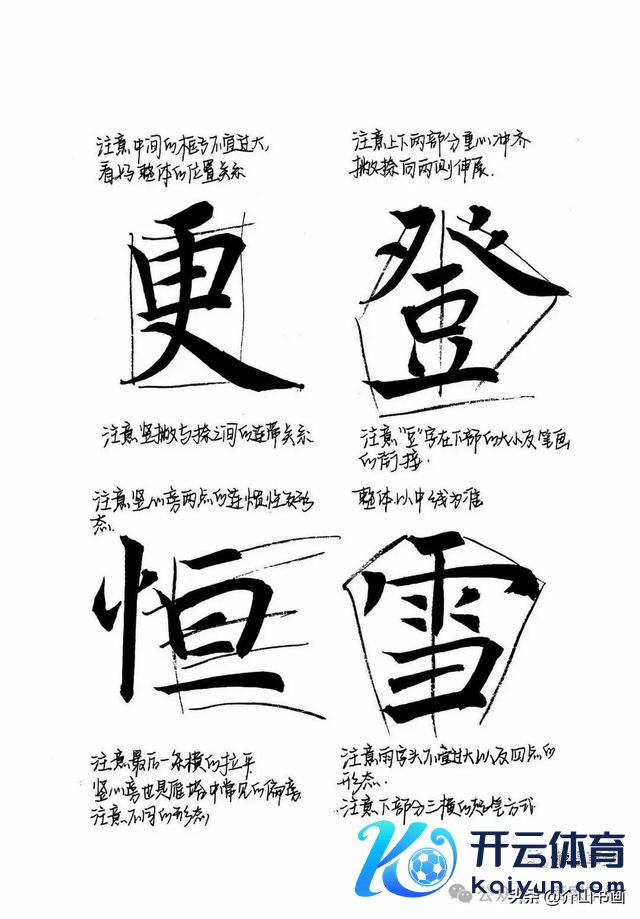 注意中间的框与不宜过大,
看好整体的位置关系
注意上下两部分重心冲齐
撇捺向两侧伸展.
更
登
注意竖撇与捺之间的连带关系
注意"豆"字在下部的大小及笔画
的衔接.
注意竖心旁两点的连惯性及形
态.
整体以中线为准
恒
雪
注意最后一条横的拉平
竖心旁也是雁塔中常见的偏旁
注意不同的形态
注意雨字头不宜过大以及四点的
形态.
注意下部分三横的起笔方式
开云体育
kaiyun.com
公众
头条@介山书画